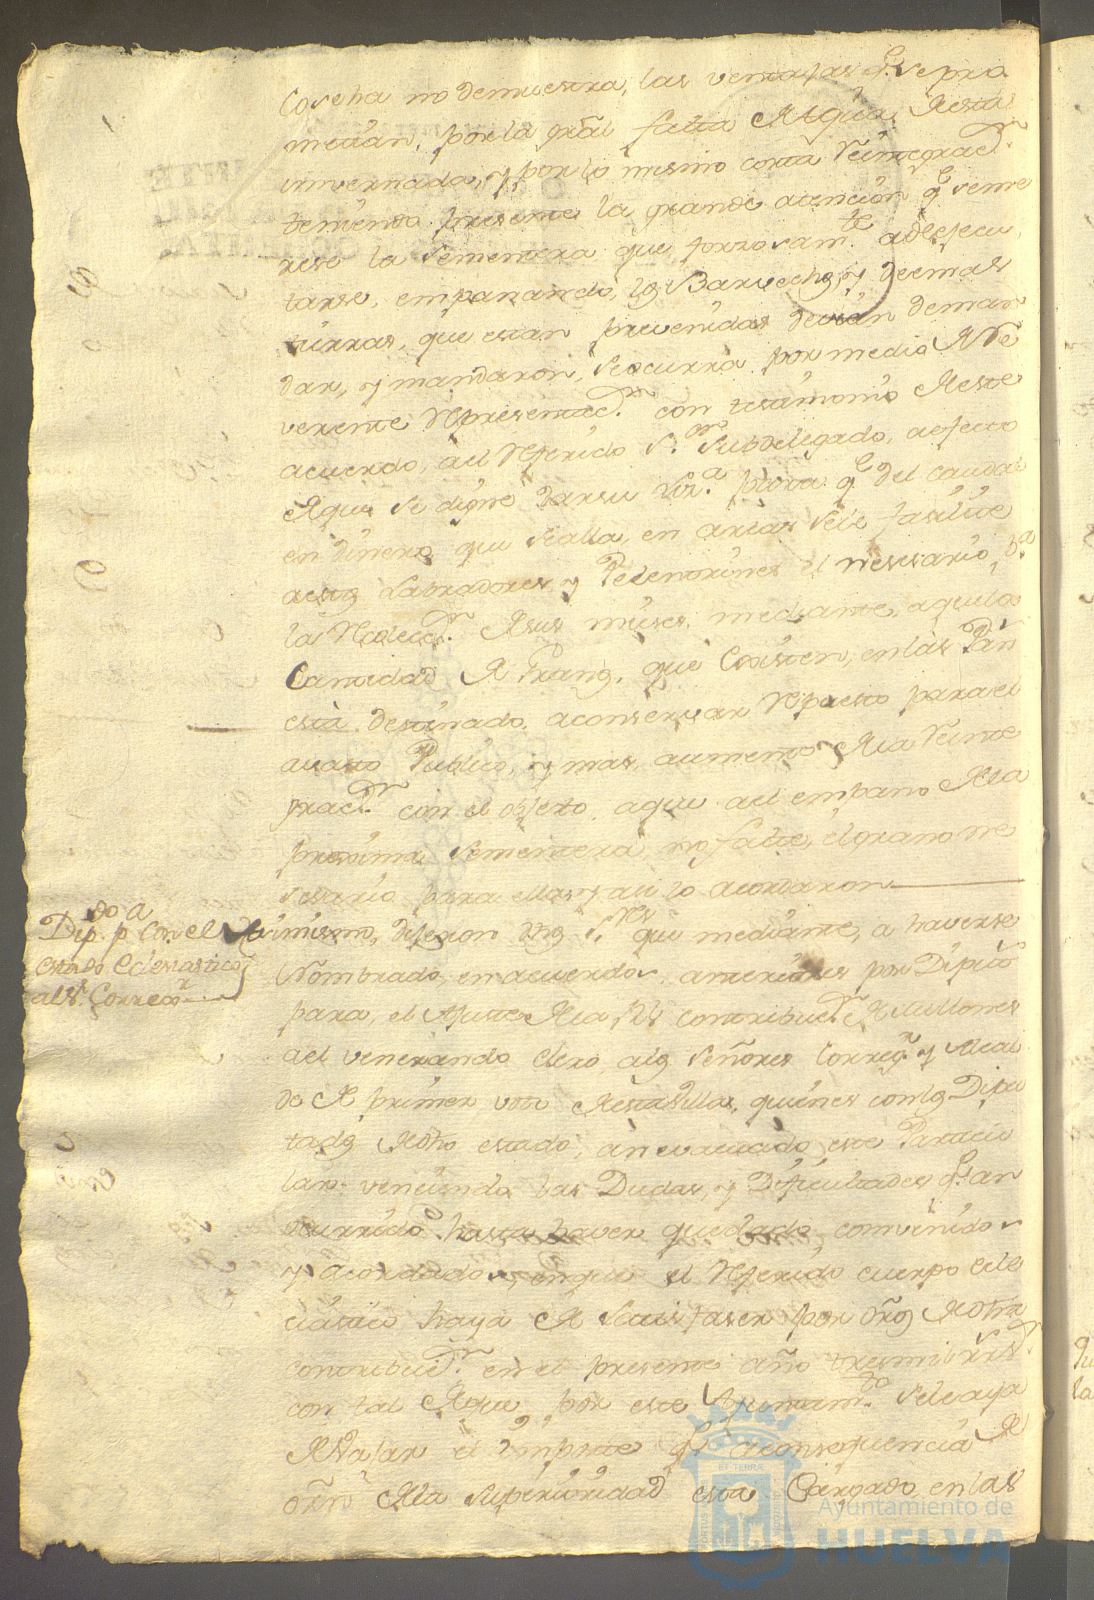 Cosecha no demuestra, las ventajas q.e se pro
metian, por la gral falta de Agua de esta
invernada, y por lo mismo corta Reintegrac.on
teniendo presente la grande atencion q.e se me
rese la sementera que forzosam.te a de ejecu
tarse, empanando, los Barvechos, y deemas
tierras, que estan prevenidas devian deman
dar, y mandaron, se ocurra por medio de Re
verente Representac.on con testimonio de este
acuerdo, al Referido S.or Subdelegado, a efecto
de que se digne dar su lis.a para q.e del caudal
en dinero que se alla en arcas se le fasilite
a estos Labradores, y Pelentrines el nesesario, p.a
la Recolecc.on de sus mieses, mediante, aquela
Cantidad de Granos, que Existen, en las Pan
está destinado, a conservar Repuesto para el
avasto Publico, y mas aumento de la Reinte
grac.on con el objeto, a que al empano de la
procsima sementera, no falte, el grano ne
sesario para ellas y asi lo acordaron
Dip.do p.a con el
estado Eclesiastico
al S.r Correg.or
Asimismo, dijeron dhos S.res que mediante, a haverse
Nombrado, en acuerdo anteriores por Diputs
para, el Ajuste de la Rl contribuc.on de Millones
del venerando clero, a los Señores Correg.r y Alcal
de de primer voto de esta Villa, quienes con los Dipu
tados de dho estado, an evacuado este Particu
lar venciendo las Dudas, y Dificultades q.e an
ocurrido hasta haver quedado, convenido
y acordado, en que el Referido cuerpo ecle
ciastico haya de satisfaser por dros de dha
contribuc.on en el presente año tres mil rrs.
con tal de que, por este Ayuntam.to se le aya
de Vajar el importe q.e a consequencia de
ôrn de la superioridad esta Cargado en las
Ayuntamiento de
HUELVA